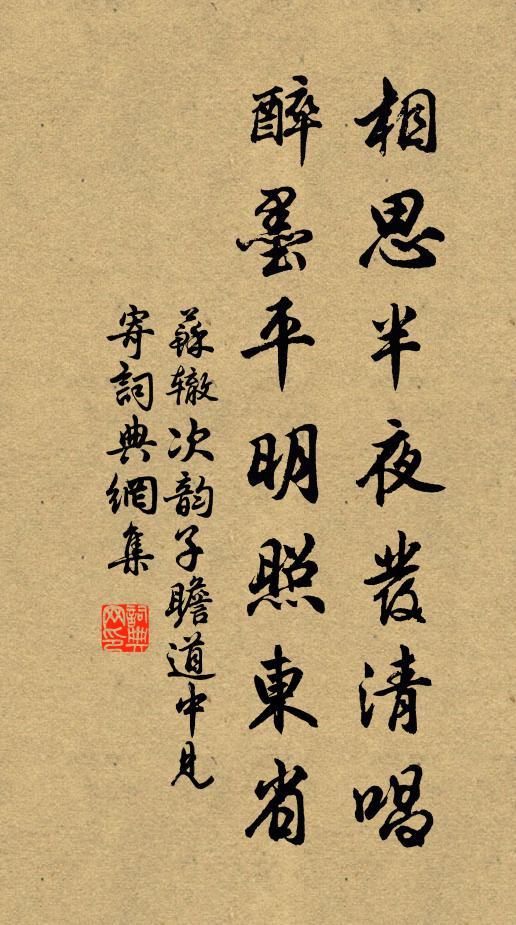 相思半夜發清唱
醉墨平明照東省
蘇辙次韵子瞻道中見
寄詞典網集
詞典
网印